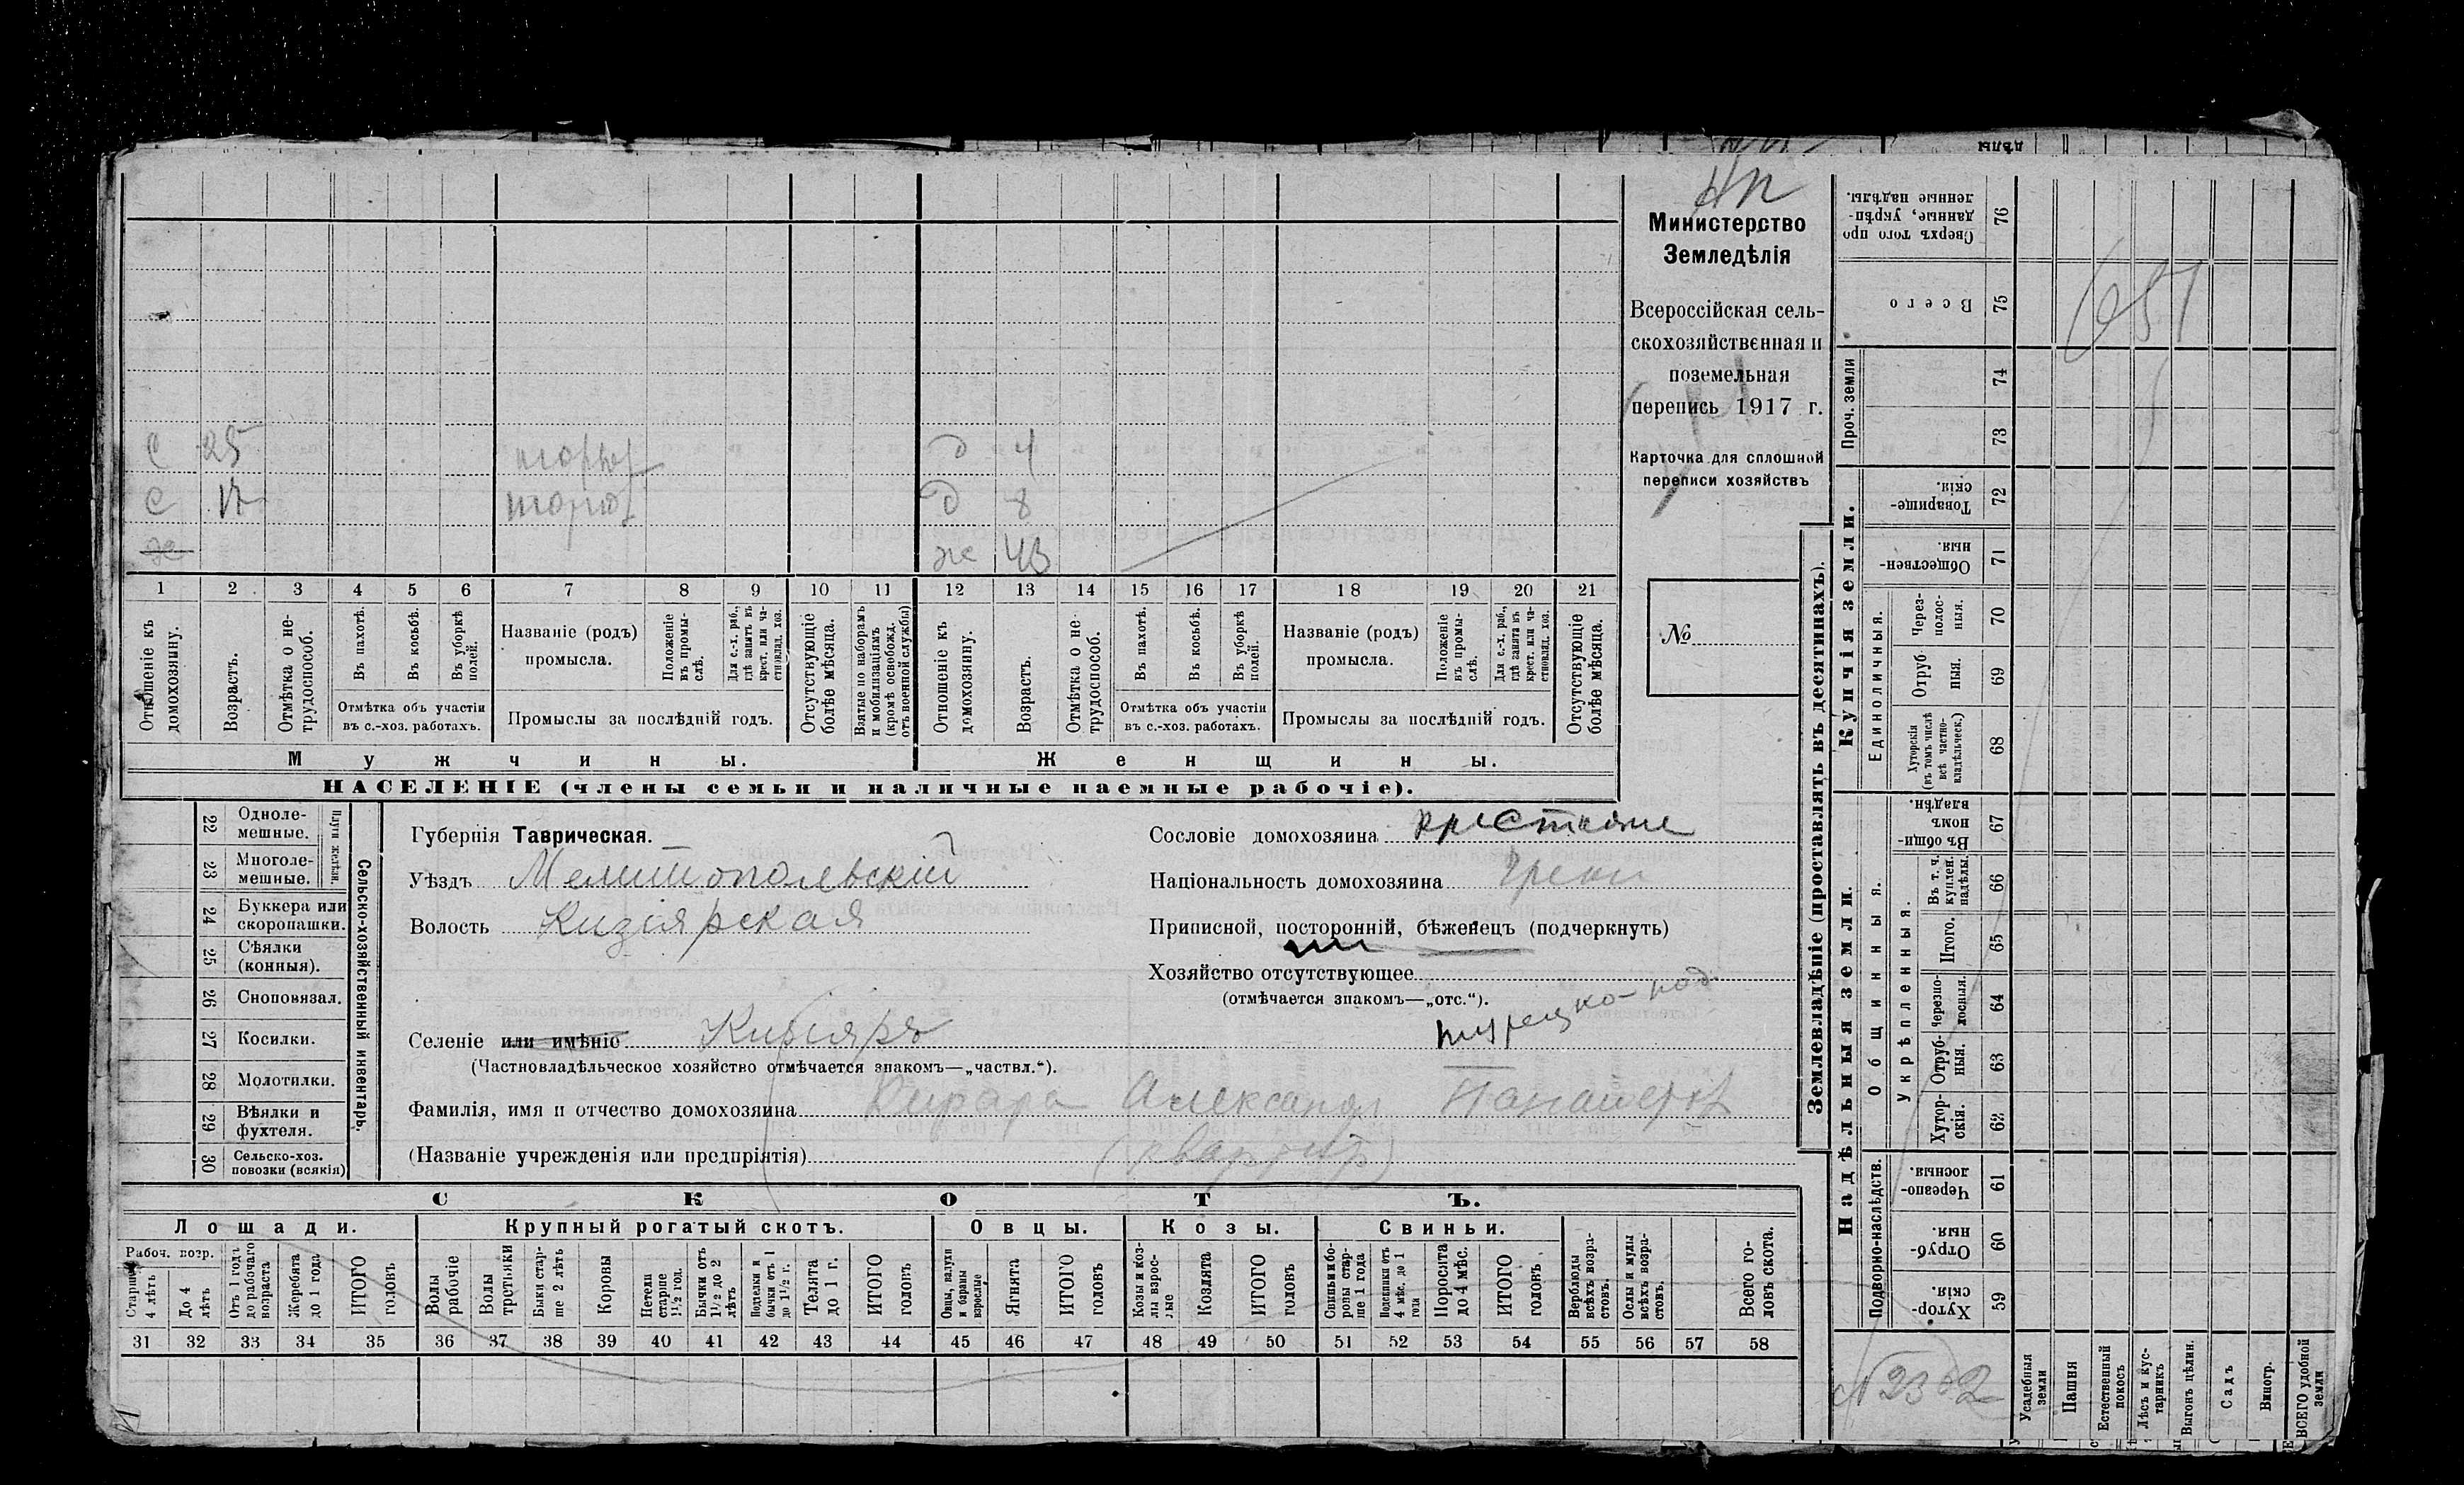 НП
Министерство
Земледѣлія
Всероссійская сель-
скохозяйственная и
поземельная
перепись 1917 г.
Карточка для сплошной
переписи хозяйствъ
№
с 25 торгов д 4
с 17 торгов д 8
ж ж 43
1 2 3 4 5 6 7 8 9 10 11 12 13 14 15 16 17 18 19 20 21
Отношеніе къ домохозяину.
Возрастъ.
Отмѣтка о не-трудоспособ.
Въ пахотѣ.
Въ косьбѣ.
Въ уборкѣ полей.
Отмѣтка объ участіи
въ с.-хоз. работахъ.
Названіе (родъ)
промысла.
Положеніе въ промы-слѣ.
Для с.-х. раб., гдѣ занятъ въ крест. или ча-стновлад. хоз.
Промыслы за послѣдній годъ.
Отсутствующіе болѣе мѣсяца.
Взятые по наборамъ и мобилизаціямъ (кромѣ освобожд. отъ военной службы)
Отношеніе къ домохозяину.
Возрастъ.
Отмѣтка о не-трудоспособ.
Въ пахотѣ.
Въ косьбѣ.
Въ уборкѣ полей.
Отмѣтка объ участіи
въ с.-хоз. работахъ.
Названіе (родъ)
промысла.
Положеніе въ промы-слѣ.
Для с.-х. раб., гдѣ занята въ крест. или ча-стновлад. хоз.
Промыслы за послѣдній годъ.
Отсутствующіе болѣе мѣсяца.
Мужчины. Женщины.
НАСЕЛЕНІЕ (члены семьи и наличные наемные рабочіе).
22 Однолемешные.
23 Многолемешные.
Плуги желѣзн.
24 Буккера или скоропашки.
25 Сѣялки (конныя).
26 Сноповязал.
27 Косилки.
28 Молотилки.
29 Вѣялки и фухтеля.
30 Сельско-хоз. повозки (всякія)
Сельско-хозяйственный инвентарь.
Губернія Таврическая.
Уѣздъ Мелитопольскій
Волость Кизіярская
Селеніе или имѣніе Кизіяръ
(Частновладѣльческое хозяйство отмѣчается знакомъ—„частвл.“).
Сословіе домохозяина крестьяне
Національность домохозяина Греки
Приписной, посторонній, бѣженецъ (подчеркнуть)
Хозяйство отсутствующее
(отмѣчается знакомъ—„отс.“).
турецко-под
Фамилія, имя и отчество домохозяина Александр
(Названіе учрежденія или предпріятія)
СКОТЪ.
Лошади. Крупный рогатый скотъ. Овцы. Козы. Свиньи.
Рабоч. возр.
Старше 4 лѣтъ
До 4 лѣтъ
Отъ 1 года до рабочаго возраста
Жеребята до 1 года
ИТОГО головъ
Волы рабочіе
Волы третьяки
Быки стар-ше 2 лѣтъ
Коровы
Нетели старше 1½ год.
Бычки отъ 1½ до 2 лѣтъ
Подтелки и бычки отъ 1 до 1½ г.
Телята до 1 г.
ИТОГО головъ
Овцы, валухи и бараны взрослые
Ягнята
ИТОГО головъ
Козы и коз-лы взрос-лые
Козлята
ИТОГО головъ
Свиньи и бо-ровы стар-ше 1 года
Подсвинки отъ 4 мѣс. до 1 года
Поросята до 4 мѣс.
ИТОГО головъ
Верблюды всѣхъ возра-стовъ.
Ослы и мулы всѣхъ возра-стовъ.
Всего го-ловъ скота.
31 32 33 34 35 36 37 38 39 40 41 42 43 44 45 46 47 48 49 50 51 52 53 54 55 56 57 58
Землевладѣніе (проставлять въ десятинахъ).
Сверхъ того про данные, укрѣп-ленные надѣлы. 76
Всего 75
Проч. земли
74
73
Купчія земли.
Товарище-скія. 72
Обществен-ныя. 71
Единоличныя.
Через-полос-ныя. 70
Отруб ныя. 69
Хуторскія (въ томъ числѣ всѣ частно-владѣльческ.) 68
Надѣльныя земли.
Общинныя.
Въ общи-номъ владѣн. 67
Укрѣпленныя.
Въ т. ч. куплен. надѣлы. 66
Итого. 65
Черезпо-лосныя. 64
Отруб-ныя. 63
Хутор-скія. 62
Подворно-наслѣдств.
Черезпо-лосныя. 61
Отруб-ныя. 60
Хутор-скія. 59
№ 2302
Усадебныя земли
Пашня
Естественный покосъ
Лѣсъ и кус-тарникъ
Выгонъ цѣлин.
Садъ
Виногр.
ВСЕГО удобной земли